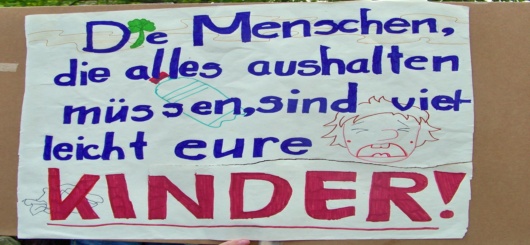 Die Menschen,
die alles aushalten
müssen, sind viel
leicht eure
KINDER!